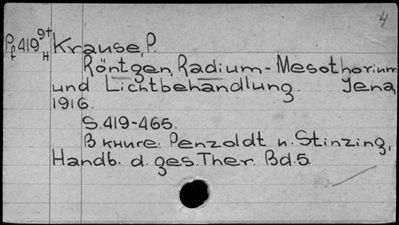 4
Pf 419 9+ H Krause, P.
Röntgen, Radium-Mesothorium
und Lichtbehandlung. Jena
1916.
S. 419-465.
В книге: Penzoldt u. Stinzing,
Handb. d. ges. Ther. Bd. 5